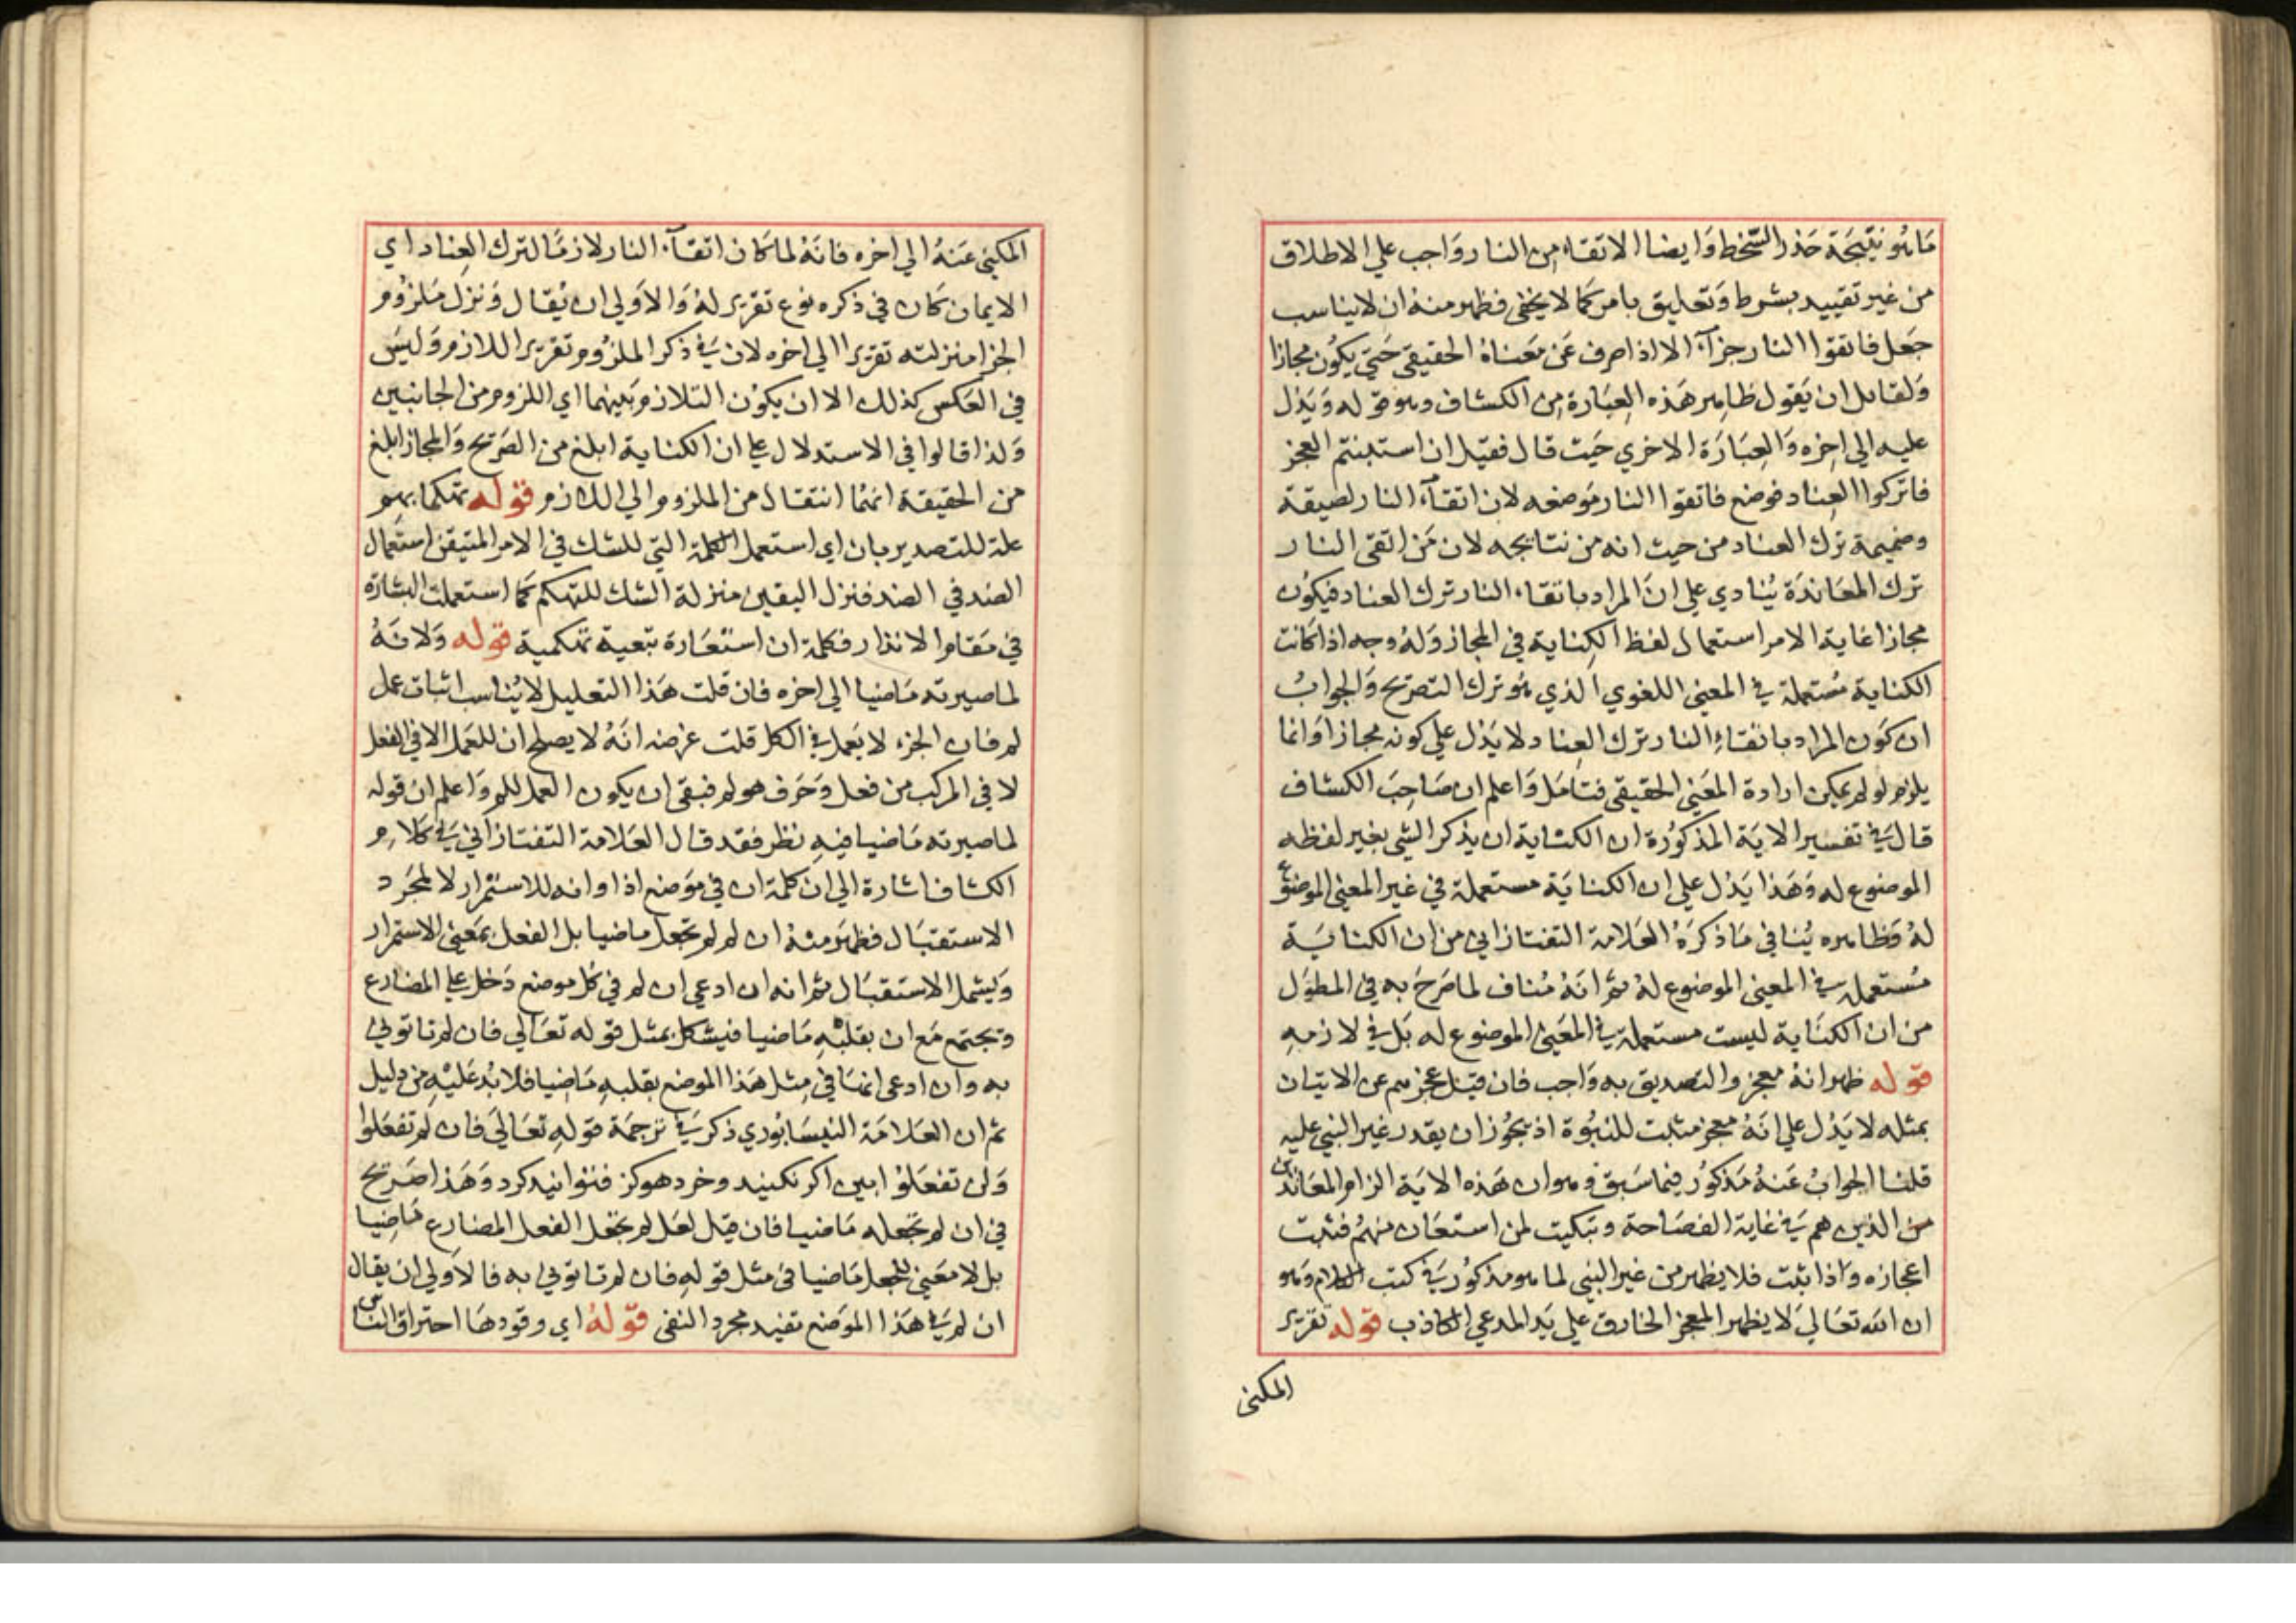 ما هو نتيجة حذر السخط وايضا الاتقاء من النار واجب علي الاطلاق
من غير تقييد بشرط وتعليق بامر كما لا يخفي فظهر منه ان لا يناسب
جعل فاتقوا النار جزآء الا اذا صرف عن معناه الحقيقي حتي يكون مجازا
ولقايل ان يقول ظاهر هذه العبارة من الكشاف وهو قوله ويدل
عليه الي اخره والعبارة الاخري حيث قال فقيل ان استبنتم العجز
فاتركوا العناد فوضع فاتقوا النار موضعه لان اتقآء النار لصيقة
وضميمة ترك العناد من حيث انه من نتايجه لان من اتقي النار
ترك المعاندة ينادي علي ان المراد باتقاء النار ترك العناد فيكون
مجازا غاية الامر استعمال لفظ الكناية في المجاز وله وجه اذا كانت
الكناية مستعملة في المعني اللغوي الذي هو ترك التصريح والجواب
ان كون المراد باتقاء النار ترك العناد لا يدل علي كونه مجازا وانما
يلزم لو لم يمكن ارادة المعني الحقيقي فتامل واعلم ان صاحب الكشاف
قال في تفسير الاية المذكورة ان الكناية ان يذكر الشي بغير لفظه
الموضوع له وهذا يدل علي ان الكناية مستعملة في غير المعني الموضوع
له وظاهره ينافي ما ذكره العلامة التفتازاني من ان الكناية
مستعملة في المعني الموضوع له ثم انه مناف لما صرح به في المطول
من ان الكناية ليست مستعملة في المعني الموضوع له بل في لازمه
قوله ظهر انه معجز والتصديق به واجب فان قيل عجزهم عن الاتيان
بمثله لا يدل علي انه معجز مثبت للنبوة اذ يجوز ان يقدر غير النبي عليه
قلنا الجواب عنه مذكور فيما سبق وهو ان هذه الاية الزام المعاندين
من الذين هم في غاية الفصاحة وتبكيت لمن استعان منهم فثبت
اعجازه واذا ثبت فلا يظهر من غير النبي لما هو مذكور في كتب الكلام وهو
ان الله تعالي لا يظهر المعجز الخارق علي يد المدعي الكاذب قوله تقرير
المكني
المكني عنه الي اخره فانه لما كان اتقآء النار لازما لترك العناد اي
الايمان كان في ذكره نوع تقرير له والاولي ان يقال ونزل ملزوم
الجزا منزلته تقريرا الي اخره لان في ذكر الملزوم تقرير اللازم وليس
في العكس كذلك الا ان يكون التلازم بينهما اي اللزوم من الجانبين
ولذا قالوا في الاستدلال علي ان الكناية ابلغ من الصريح والمجاز ابلغ
من الحقيقة انهما انتقال من الملزوم الي اللازم قوله تهكما بهم
علة للتصدير بان اي استعمل الكلمة التي للشك في الامر المتيقن استعمال
الضد في الضد فنزل اليقين منزلة الشك للتهكم كما استعملت البشارة
في مقام الانذار فكلمة ان استعارة تبعية تهكمية قوله ولانه
لما صيرته ماضيا الي اخره فان قلت هذا التعليل لا يناسب اثبات عمل
لم فان الجزء لا يعمل في الكل قلت غرضه انه لا يصلح ان للعمل الا في الفعل
لا في المركب من فعل وحرف هو لم فبقي ان يكون العمل للم واعلم ان قوله
لما صيرته ماضيا فيه نظر فقد قال العلامة التفتازاني في كلام
الكشاف اشارة الي ان كلمة ان في موضع اذا وانه للاستمرار لا لمجرد
الاستقبال فظهر منه ان لم لم تجعل ماضيا بل الفعل بمعني الاستمرار
ويشمل الاستقبال ثم انه ان ادعي ان لم في كل موضع دخل علي المضارع
وتجتمع مع ان بقلبه ماضيا فيشكل بمثل قوله تعالي فان لم تاتوني
به وان ادعي انها في مثل هذا الموضع بقلبه ماضيا فلا بد عليه من دليل
ثم ان العلامة النيسابوري ذكر في ترجمة قوله تعالي فان لم تفعلوا
ولن تفعلوا ابين اكر نكنيد وخرد هوكز فتوانيد كرد وهذا صريح
في ان لم تجعله ماضيا فان قيل لعل لم يجعل الفعل المضارع ماضيا
بل لا معني للجعل ماضيا في مثل قوله فان لم تاتوني به فالاولي ان يقال
ان لم في هذا الموضع تفيد مجرد النفي قوله اي وقودها احتراق الناس